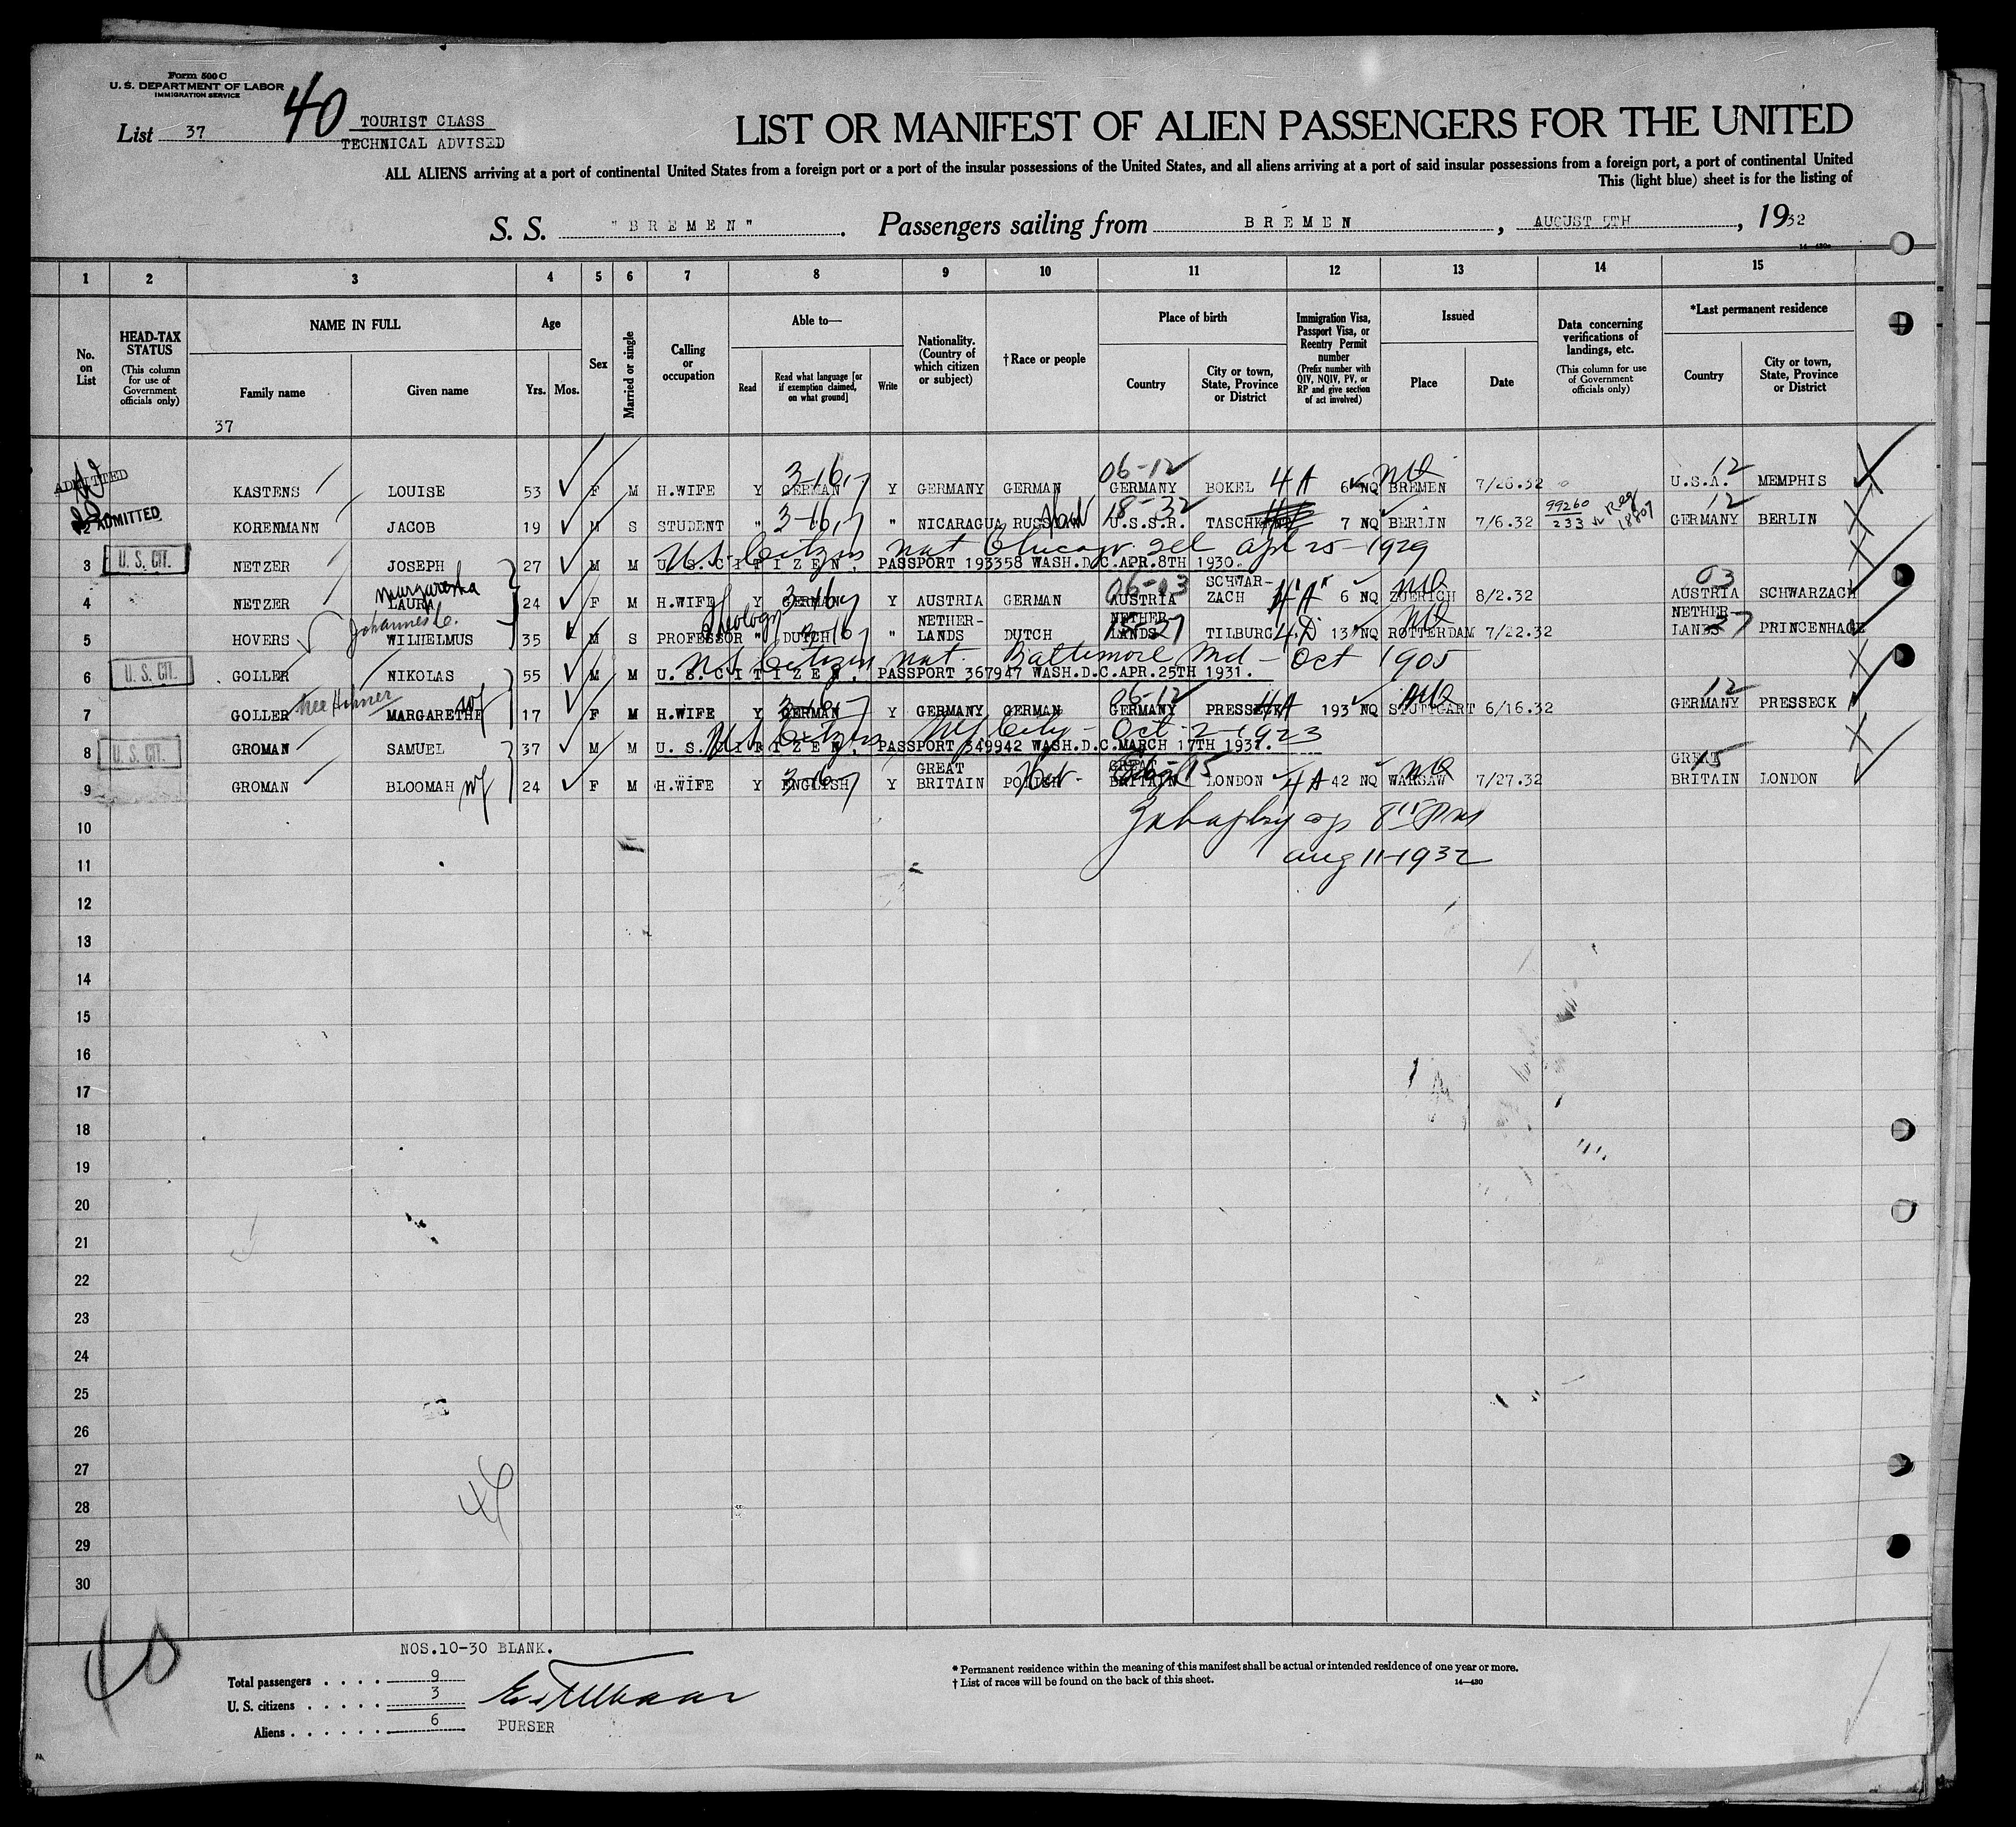 Form 500 C
U. S. DEPARTMENT OF LABOR
IMMIGRATION SERVICE
40
List 37
TOURIST CLASS
TECHNICAL ADVISED
LIST OR MANIFEST OF ALIEN PASSENGERS FOR THE UNITED
ALL ALIENS arriving at a port of continental United States from a foreign port or a port of the insular possessions of the United States, and all aliens arriving at a port of said insular possessions from a foreign port, a port of continental United
This (light blue) sheet is for the listing of
S. S. "BREMEN". Passengers sailing from BREMEN, AUGUST 5TH, 1932
1 2 3 4 5 6 7 8 9 10 11 12 13 14 15
No. on List
HEAD-TAX STATUS (This column for use of Government officials only)
NAME IN FULL
Family name
Given name
Age
Yrs. Mos.
Sex
Married or single
Calling or occupation
Able to—
Read
Read what language [or if exemption claimed, on what ground]
Write
Nationality. (Country of which citizen or subject)
†Race or people
Place of birth
Country
City or town, State, Province or District
Immigration Visa, Passport Visa, or Reentry Permit number (Prefix number with QIV, NQIV, PV, or RP and give section of act involved)
Issued
Place
Date
Data concerning verifications of landings, etc. (This column for use of Government officials only)
*Last permanent residence
Country
City or town, State, Province or District
37
ADMITTED KASTENS LOUISE 53 F M H.WIFE Y GERMAN 3-16-7 Y GERMANY GERMAN 06-12 GERMANY BOKEL 4A 6 NQ BREMEN 7/26.32 12 U.S.A. MEMPHIS
2 ADMITTED KORENMANN JACOB 19 M S STUDENT " 3-16-7 " NICARAGUA RUSSIAN 18-32 U.S.S.R. 7 NQ BERLIN 7/6.32 99260 233 Reg 18807 12 GERMANY BERLIN
3 U. S. CIT. NETZER JOSEPH 27 M M U.S. Citizen nat Chicago Ill Apl 25-1929
U.S.CITIZEN. PASSPORT 193358 WASH.D.C.APR.8TH 1930.
4 NETZER Margaretha LAURA 24 F M H.WIFE Y GERMAN 3-16-7 Y AUSTRIA GERMAN 06-03 AUSTRIA SCHWAR-ZACH 4A 6 NQ ZUERICH 8/2.32 03 AUSTRIA SCHWARZACH
5 HOVERS Johannes C. WILHELMUS 35 M S Theology PROFESSOR " DUTCH 3-16-7 " NETHER-LANDS DUTCH NETHER-LANDS TILBURG 4.D 13 NQ ROTTERDAM 7/22.32 NETHER-LANDS 37 PRINCENHAGE
6 U. S. CIT. GOLLER NIKOLAS 55 M M U.S. Citizen nat. Baltimore Md - Oct 1905
U.S.CITIZEN. PASSPORT 367947 WASH.D.C.APR.25TH 1931.
7 GOLLER MARGARETHE wf 17 F M H.WIFE Y GERMAN 3-16-7 Y GERMANY GERMAN 06-12 GERMANY PRESSECK 4A 193 NQ STUTTGART 6/16.32 12 GERMANY PRESSECK
8 U. S. CIT. GROMAN SAMUEL 37 M M U.S. Citizen NY City - Oct-2-1923
U.S.CITIZEN. PASSPORT 349942 WASH.D.C.MARCH 17TH 1931.
9 GROMAN BLOOMAH wf 24 F M H.WIFE Y ENGLISH 3-16-7 Y GREAT BRITAIN POLISH GREAT BRITAIN LONDON 4A 42 NQ WARSAW 7/27.32 GREAT BRITAIN 15 LONDON
10
11 Aug 11-1932
12
13
14
15
16
17
18
19
20
21
22
23
24
25
26
27
28
29
30
46
40
NOS.10-30 BLANK.
Total passengers . . . . 9
U. S. citizens . . . . . . 3
Aliens . . . . . . 6
PURSER
* Permanent residence within the meaning of this manifest shall be actual or intended residence of one year or more.
† List of races will be found on the back of this sheet.
14—430